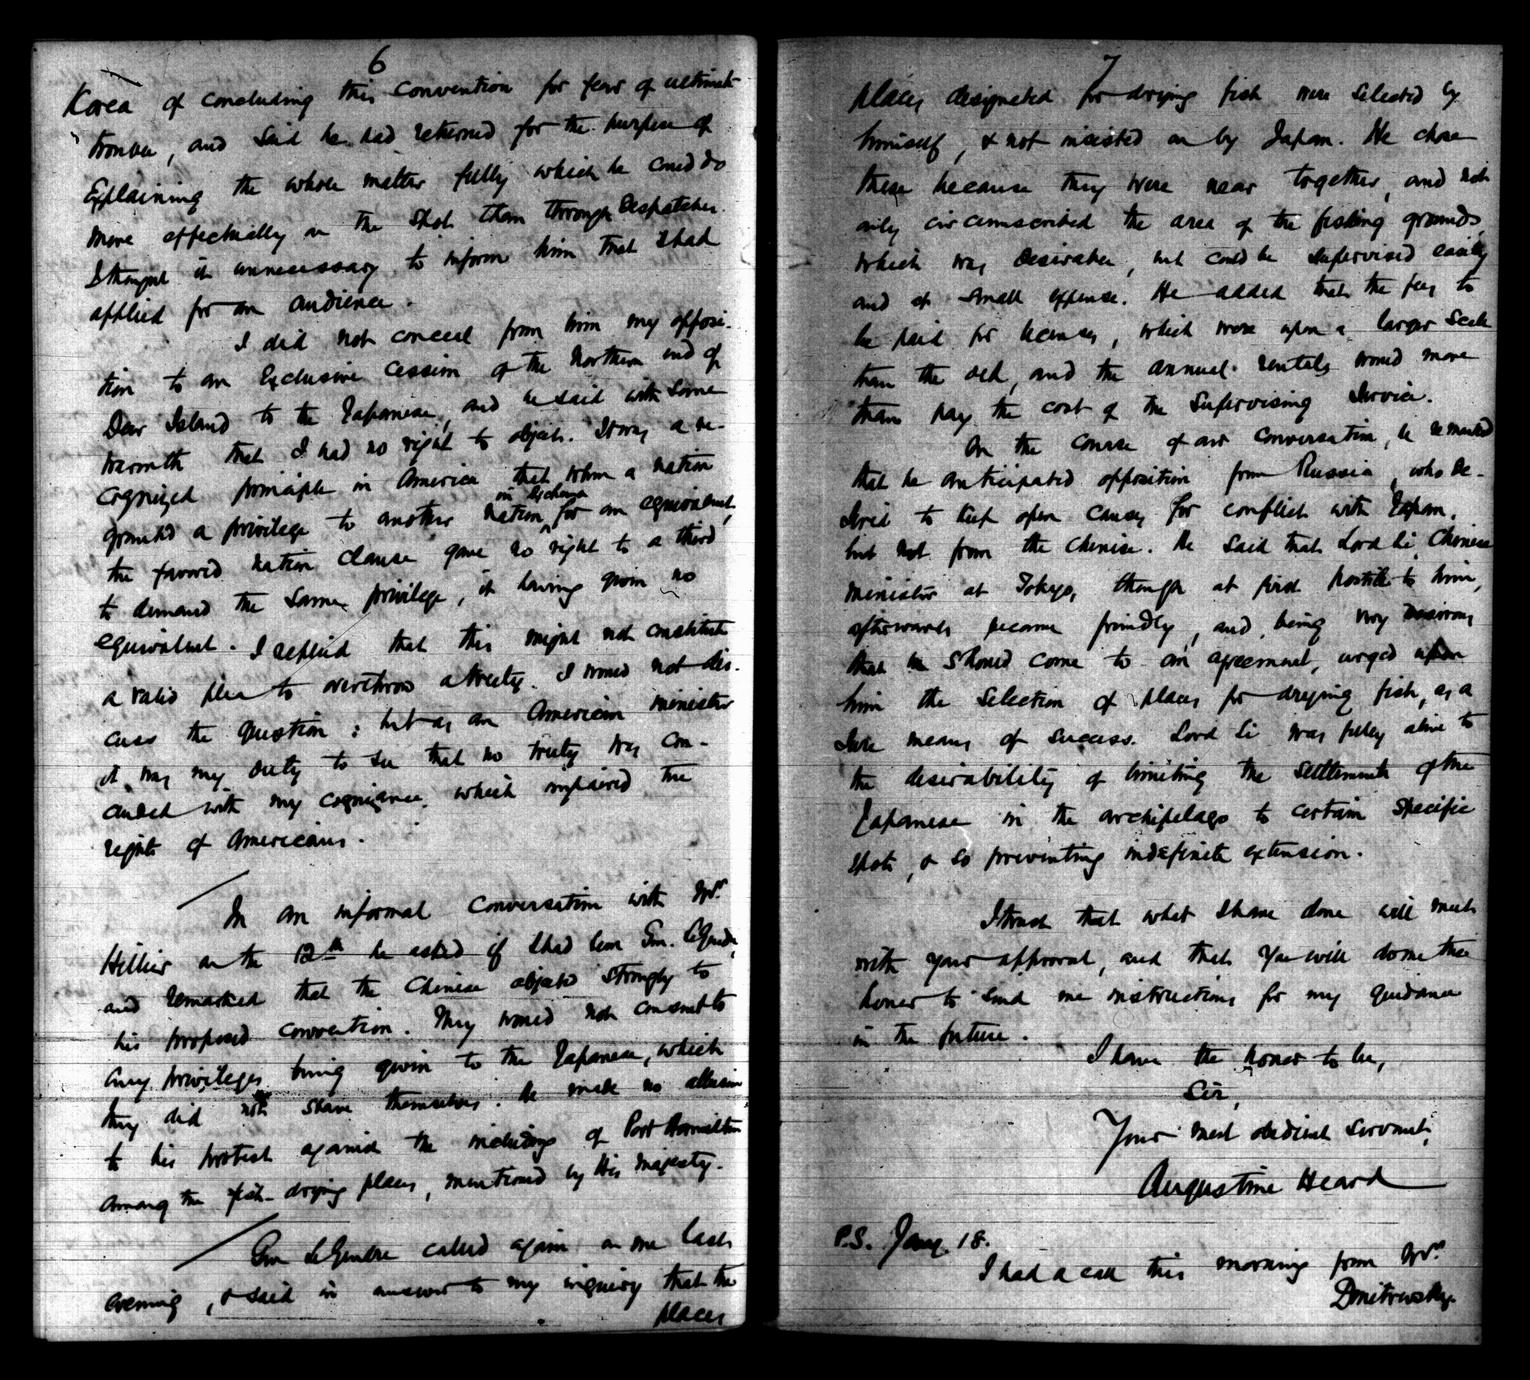 6
Korea of concluding this Convention for fear of ultimate
trouble, and said he had returned for the purpose of
Explaining the whole matter fully which he could do
more effectually on the spot than through Despatches.
I thought it unnecessary to inform him that I had
applied for an audience.
I did not conceal from him my opposi-
tion to an Exclusive cession of the Northern end of
Deer Island to the Japanese, and he said with some
warmth that I had no right to object. It was a re-
cognized principle in America that when a nation
granted a privilege to another nation in exchange for an equivalent,
the favored nation clause gave no right to a third
to demand the same privilege, it having given no
equivalent. I replied that this might not constitute
a valid plea to overthrow a treaty. I would not dis-
cuss the question: but as an American minister
it was my duty to see that no treaty was con-
cluded with my cognizance, which impaired the
rights of Americans.
In an informal conversation with Mr.
Hillier on the 12th he asked if I had seen Gen. LeGendre,
and remarked that the Chinese objected strongly to
his proposed convention. They would not consent to
any privileges being given to the Japanese, which
they did not share themselves. He made no allusion
to his protest against the including of Port Hamilton
among the fish-drying places, mentioned by His Majesty.
Gen LeGendre called again on me last
evening, & said in answer to my inquiry that the
places
7
places designated for drying fish were selected by
himself, & not insisted on by Japan. He chose
these because they were near together, and not
only circumscribed the area of the fishing grounds,
which was desirable, but could be supervised easily
and at small expense. He added that the fees to
be paid for licenses, which were upon a larger scale
than the old, and the annual rentals would more
than pay the cost of the supervising service.
In the course of our conversation, he remarked
that he anticipated opposition from Russia, who de-
sired to keep open causes for conflict with Japan,
but not from the Chinese. He said that Lord Li, Chinese
minister at Tokyo, though at first hostile to him,
afterwards became friendly, and, being very desirous
that he should come to an agreement, urged upon
him the selection of places for drying fish, as a
sure means of success. Lord Li was fully alive to
the desirability of limiting the settlements of the
Japanese in the archipelago to certain specific
spots, & so preventing indefinite extension.
I trust that what I have done will meet
with your approval, and that you will do me the
honor to send me instructions for my guidance
in the future.
I have the honor to be,
Sir,
Your most obedient servant,
Augustine Heard
P.S. Jany. 18.
I had a call this morning from Mr.
Dmitrevsky.